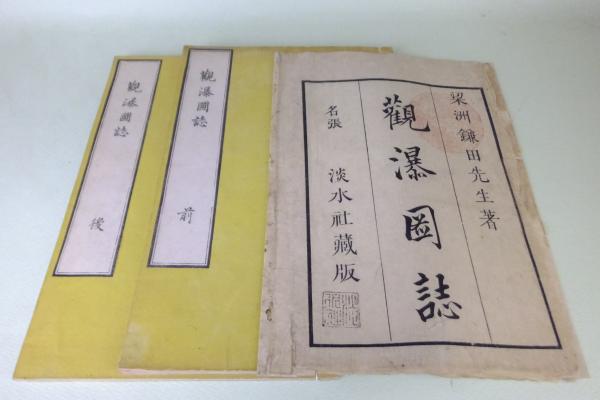 梁洲鎌田先生著
觀瀑圖誌
名張 淡水社藏版
觀瀑圖誌
前
觀瀑圖誌
後